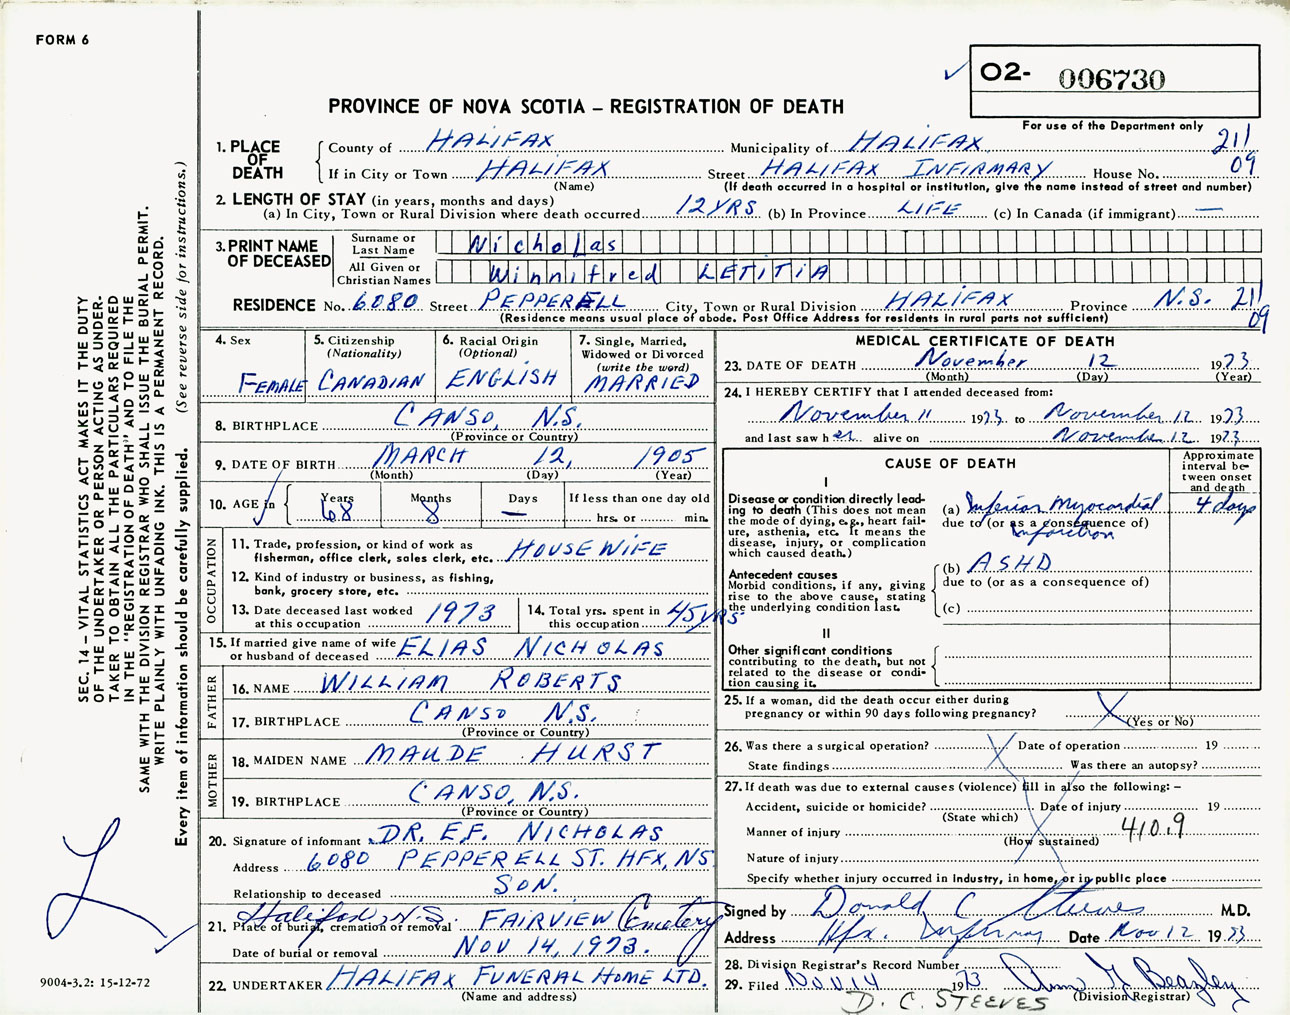 FORM 6
O2- 006730
PROVINCE OF NOVA SCOTIA – REGISTRATION OF DEATH
For use of the Department only
211
09
1. PLACE OF DEATH
County of HALIFAX Municipality of HALIFAX
If in City or Town HALIFAX Street HALIFAX INFIRMARY House No.
(Name) (If death occurred in a hospital or institution, give the name instead of street and number)
2. LENGTH OF STAY (in years, months and days)
(a) In City, Town or Rural Division where death occurred 12 YRS (b) In Province LIFE (c) In Canada (if immigrant) —
3. PRINT NAME OF DECEASED
Surname or Last Name Nicholas
All Given or Christian Names Winnifred LETITIA
RESIDENCE No. 6080 Street PEPPERELL City, Town or Rural Division HALIFAX Province N.S. 211
09
(Residence means usual place of abode. Post Office Address for residents in rural parts not sufficient)
4. Sex FEMALE
5. Citizenship (Nationality) CANADIAN
6. Racial Origin (Optional) ENGLISH
7. Single, Married, Widowed or Divorced (write the word) MARRIED
8. BIRTHPLACE CANSO, N.S.
(Province or Country)
9. DATE OF BIRTH MARCH 12, 1905
(Month) (Day) (Year)
10. AGE in Years 68 Months 8 Days — If less than one day old
hrs. or min.
OCCUPATION
11. Trade, profession, or kind of work as HOUSEWIFE
fisherman, office clerk, sales clerk, etc.
12. Kind of industry or business, as fishing,
bank, grocery store, etc.
13. Date deceased last worked at this occupation 1973
14. Total yrs. spent in this occupation 45 YRS
15. If married give name of wife or husband of deceased ELIAS NICHOLAS
FATHER
16. NAME WILLIAM ROBERTS
17. BIRTHPLACE CANSO N.S.
(Province or Country)
MOTHER
18. MAIDEN NAME MAUDE HURST
19. BIRTHPLACE CANSO, N.S.
(Province or Country)
20. Signature of informant DR. E.F. NICHOLAS
Address 6080 PEPPERELL ST. HFX, NS
Relationship to deceased SON.
21. Place of burial, cremation or removal Halifax, N.S. FAIRVIEW Cemetery
Date of burial or removal NOV 14, 1973.
22. UNDERTAKER HALIFAX FUNERAL HOME LTD.
(Name and address)
MEDICAL CERTIFICATE OF DEATH
23. DATE OF DEATH November 12 1973
(Month) (Day) (Year)
24. I HEREBY CERTIFY that I attended deceased from:
November 11 1973 to November 12 1973
and last saw her alive on November 12 1973
CAUSE OF DEATH
Approximate interval between onset and death
I
Disease or condition directly leading to death (This does not mean the mode of dying, e.g., heart failure, asthenia, etc. It means the disease, injury, or complication which caused death.)
(a) Inferior Myocardial 4 days
due to (or as a consequence of)
Infarction
Antecedent causes
Morbid conditions, if any, giving rise to the above cause, stating the underlying condition last.
(b) ASHD
due to (or as a consequence of)
(c)
II
Other significant conditions
contributing to the death, but not related to the disease or condition causing it.
25. If a woman, did the death occur either during
pregnancy or within 90 days following pregnancy?
(Yes or No)
26. Was there a surgical operation? Date of operation 19
State findings Was there an autopsy?
27. If death was due to external causes (violence) fill in also the following: –
Accident, suicide or homicide? Date of injury 19
(State which)
Manner of injury 410.9
(How sustained)
Nature of injury
Specify whether injury occurred in industry, in home, or in public place
Signed by Donald C Steeves M.D.
Address Hfx. Infirmary Date Nov 12 1973
28. Division Registrar's Record Number
29. Filed Nov 14 1973
(Division Registrar)
D. C. STEEVES
SEC. 14 – VITAL STATISTICS ACT MAKES IT THE DUTY
OF THE UNDERTAKER OR PERSON ACTING AS UNDER-
TAKER TO OBTAIN ALL THE PARTICULARS REQUIRED
IN THE "REGISTRATION OF DEATH" AND TO FILE THE
SAME WITH THE DIVISION REGISTRAR WHO SHALL ISSUE THE BURIAL PERMIT.
WRITE PLAINLY WITH UNFADING INK. THIS IS A PERMANENT RECORD.
Every item of information should be carefully supplied. (See reverse side for instructions.)
9004-3.2: 15-12-72